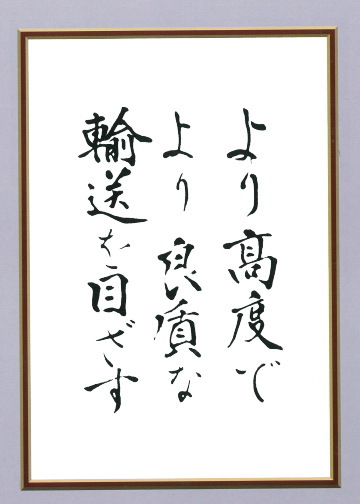 より高度で
より良質な
輸送を目ざす